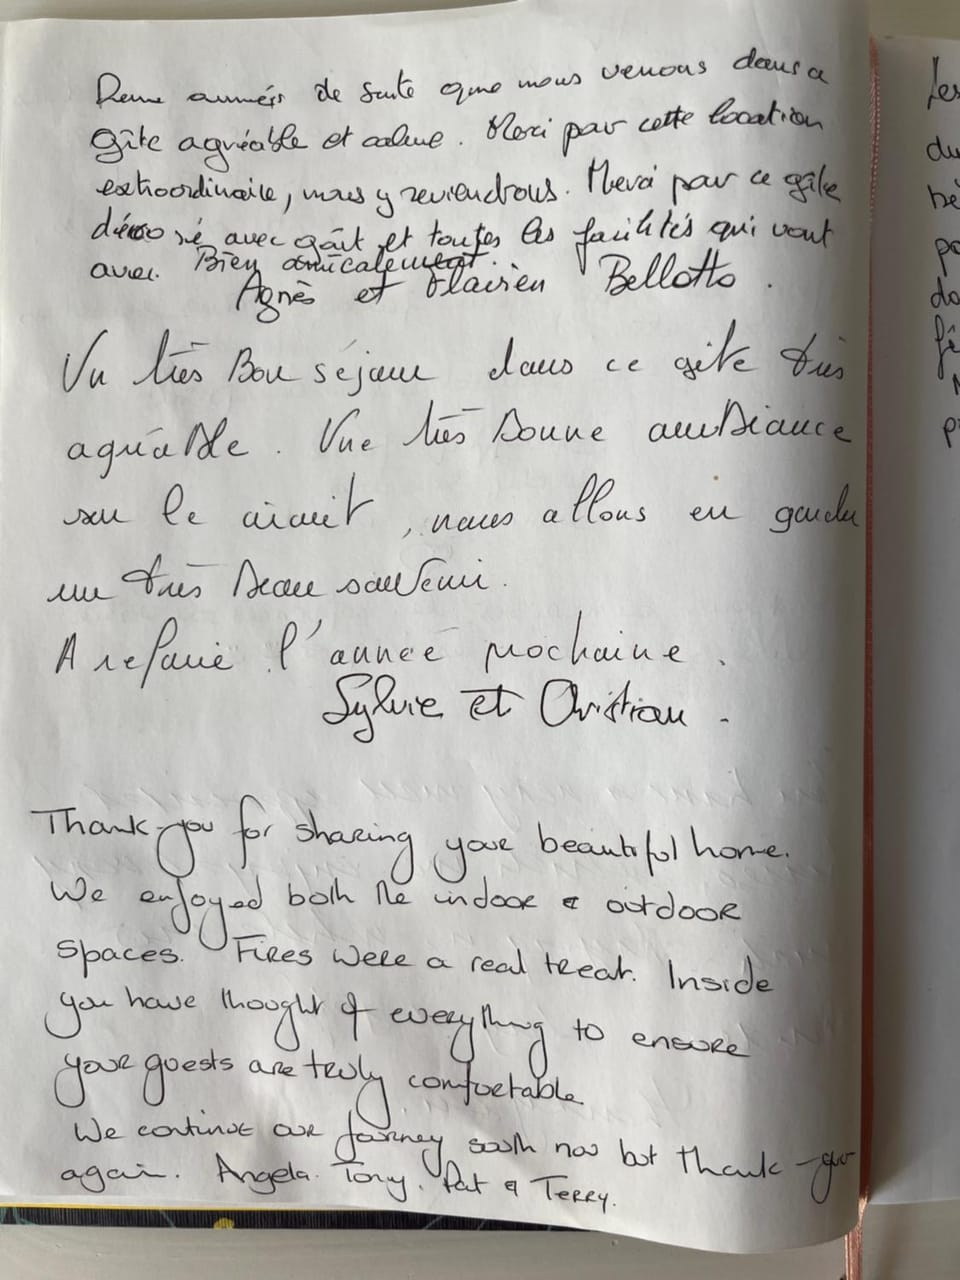 Deux années de suite que nous venons dans ce
gîte agréable et calme. Merci pour cette location
extraordinaire, nous y reviendrons. Merci pour ce gîte
décoré avec goût et toutes les facilités qui vont
avec. Bien amicalement.
Agnès et Flavien Bellotto.
Un très Bon séjour dans ce gîte très
agréable. Une très Bonne ambiance
sur le circuit, nous allons en garder
un très Beau souvenir.
A refaire l'année prochaine.
Sylvie et Christian.
Thank-you for sharing your beautiful home.
We enjoyed both the indoor & outdoor
spaces. Fires were a real treat. Inside
you have thought of everything to ensure
your guests are truly comfortable
We continue our journey south now but thank-you
again. Angela. Tony. Pat & Terry.
Les
du